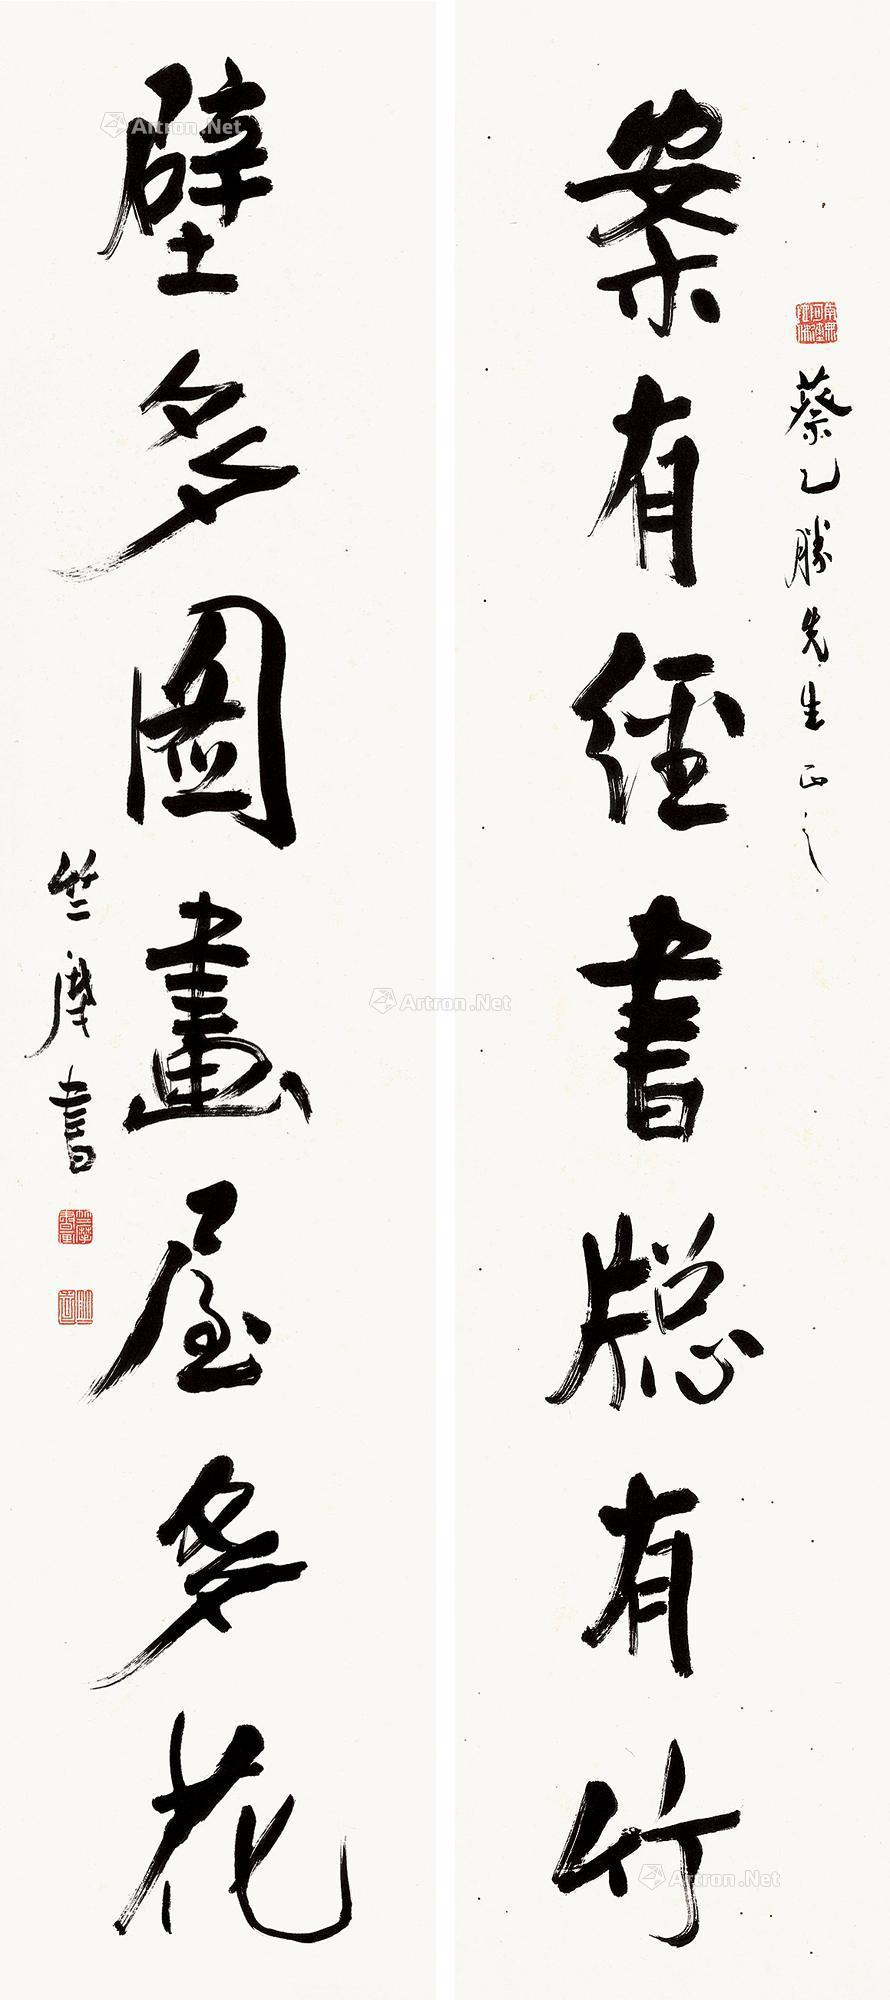 蔡乙勝先生正之
案有經書窻有竹
壁多圖畫屋多花
竺摩書
Artron.Net
Artron.Net
Artron.Net